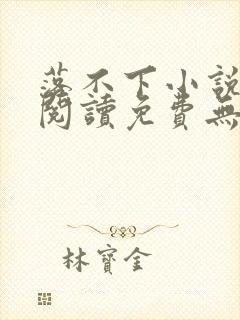 落不下小說
閱讀免費無
林寶金